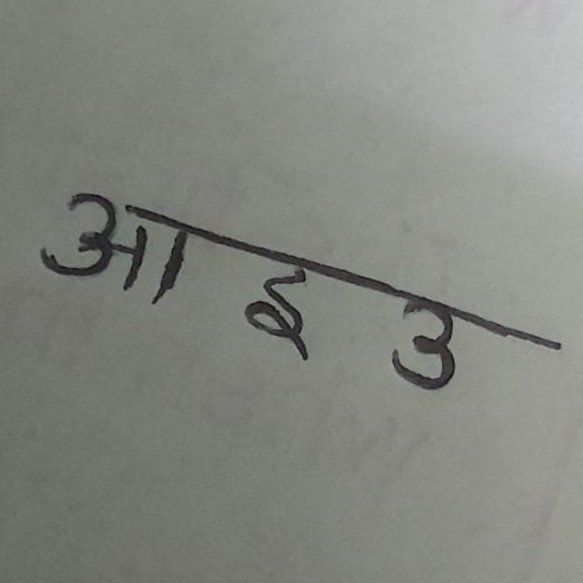 आ इ उ